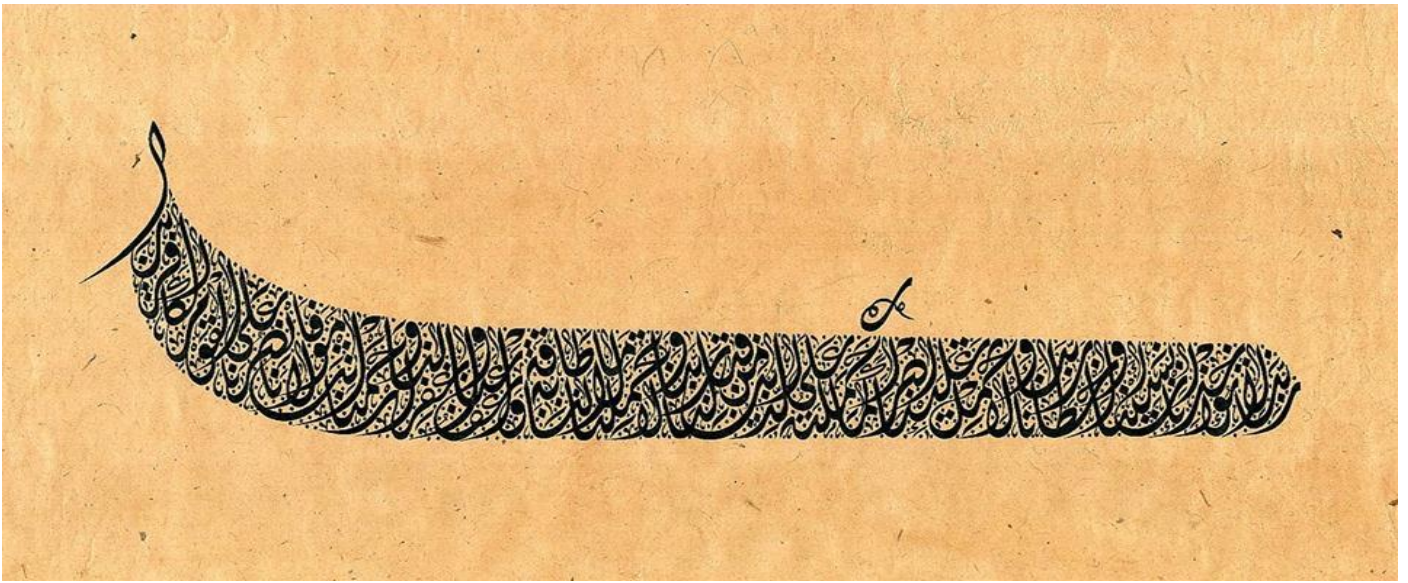 ربنا لا تؤاخذنا إن نسينا أو أخطأنا ربنا ولا تحمل علينا إصرا كما حملته على الذين من قبلنا ربنا ولا تحملنا ما لا طاقة لنا به واعف عنا واغفر لنا وارحمنا أنت مولانا فانصرنا على القوم الكافرين